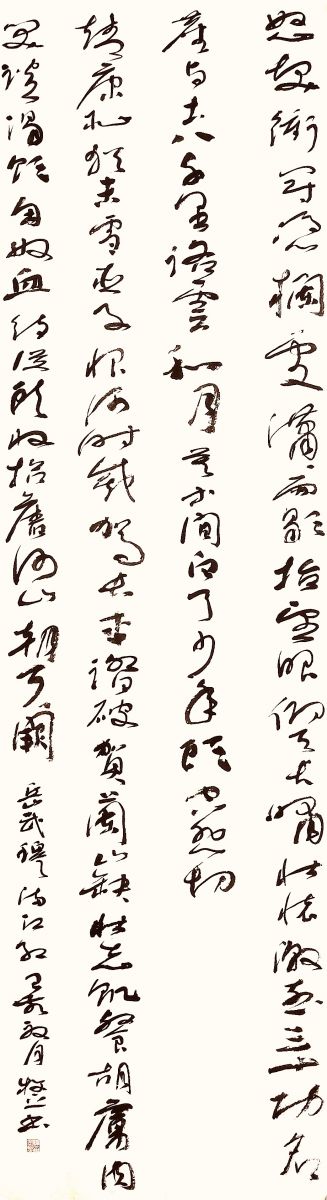 怒發衝冠憑欄處瀟雨歇抬望眼仰天長嘯壯懷激烈三十功名
塵与土八千里路雲和月莫等閒白了少年頭空悲切
靖康恥猶未雪臣子恨何時滅駕長車踏破賀蘭山缺壯志飢餐胡虜肉
笑談渴飲匈奴血待從頭收拾舊河山朝天闕
岳武穆滿江紅